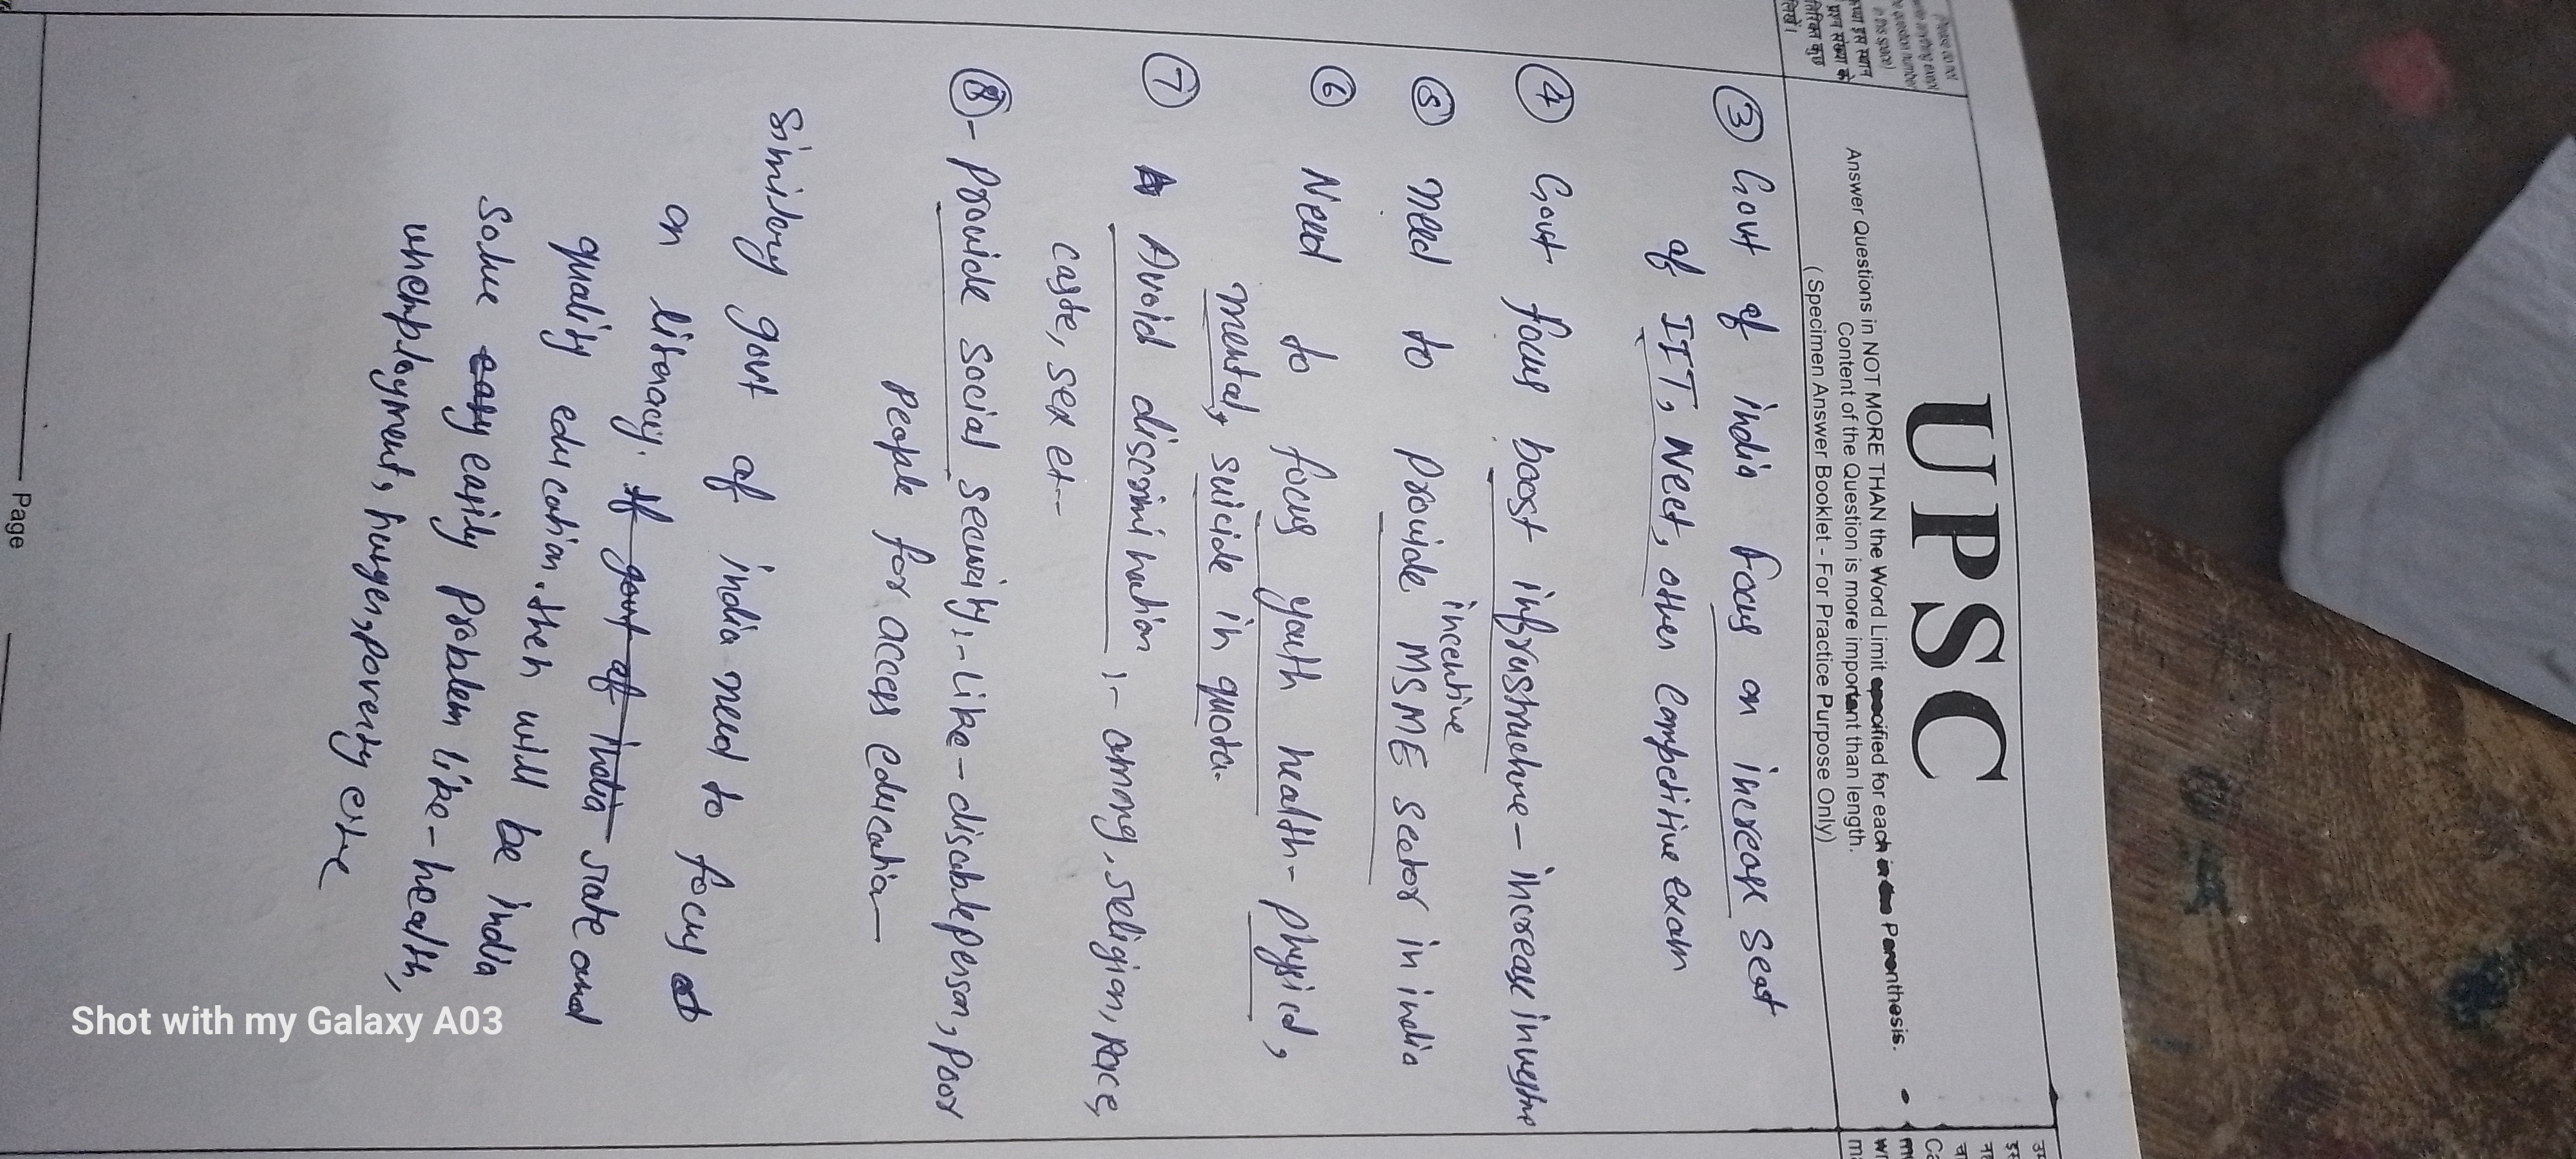 UPSC
Answer Questions in NOT MORE THAN the Word Limit specified for each in the Parenthesis.
Content of the Question is more important than length.
(Specimen Answer Booklet - For Practice Purpose Only)
(Please do not
write anything except
the question number
in this space)
③ Govt of india focus on increase seat
of IIT, Neet, other competitive exam
④ Govt focus boost infrustructure - increase
⑤ need to provide MSME sector in india
incentive
⑥ Need to focus youth health - physical,
mental, suicide in quota.
⑦ A Avoid discrimination :- among, religion, Race,
caste, sex et--
⑧ - Provide social security :- Like - disableperson, Poor
People for access education -
Similary govt of india need to focus
on literacy. If govt of india state and
quality education. then will be india
solve easy easily problem like - health,
unemployment, hunger, poverty
Page
Shot with my Galaxy A03